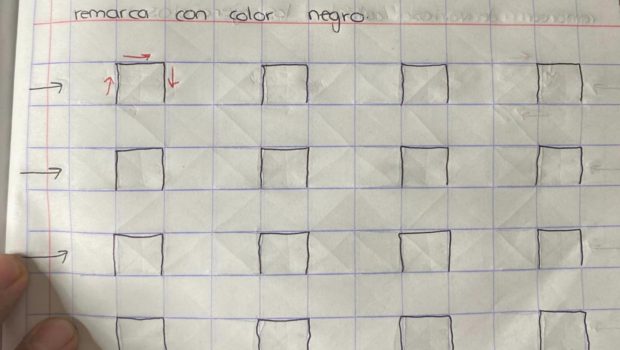 remarca con color negro.